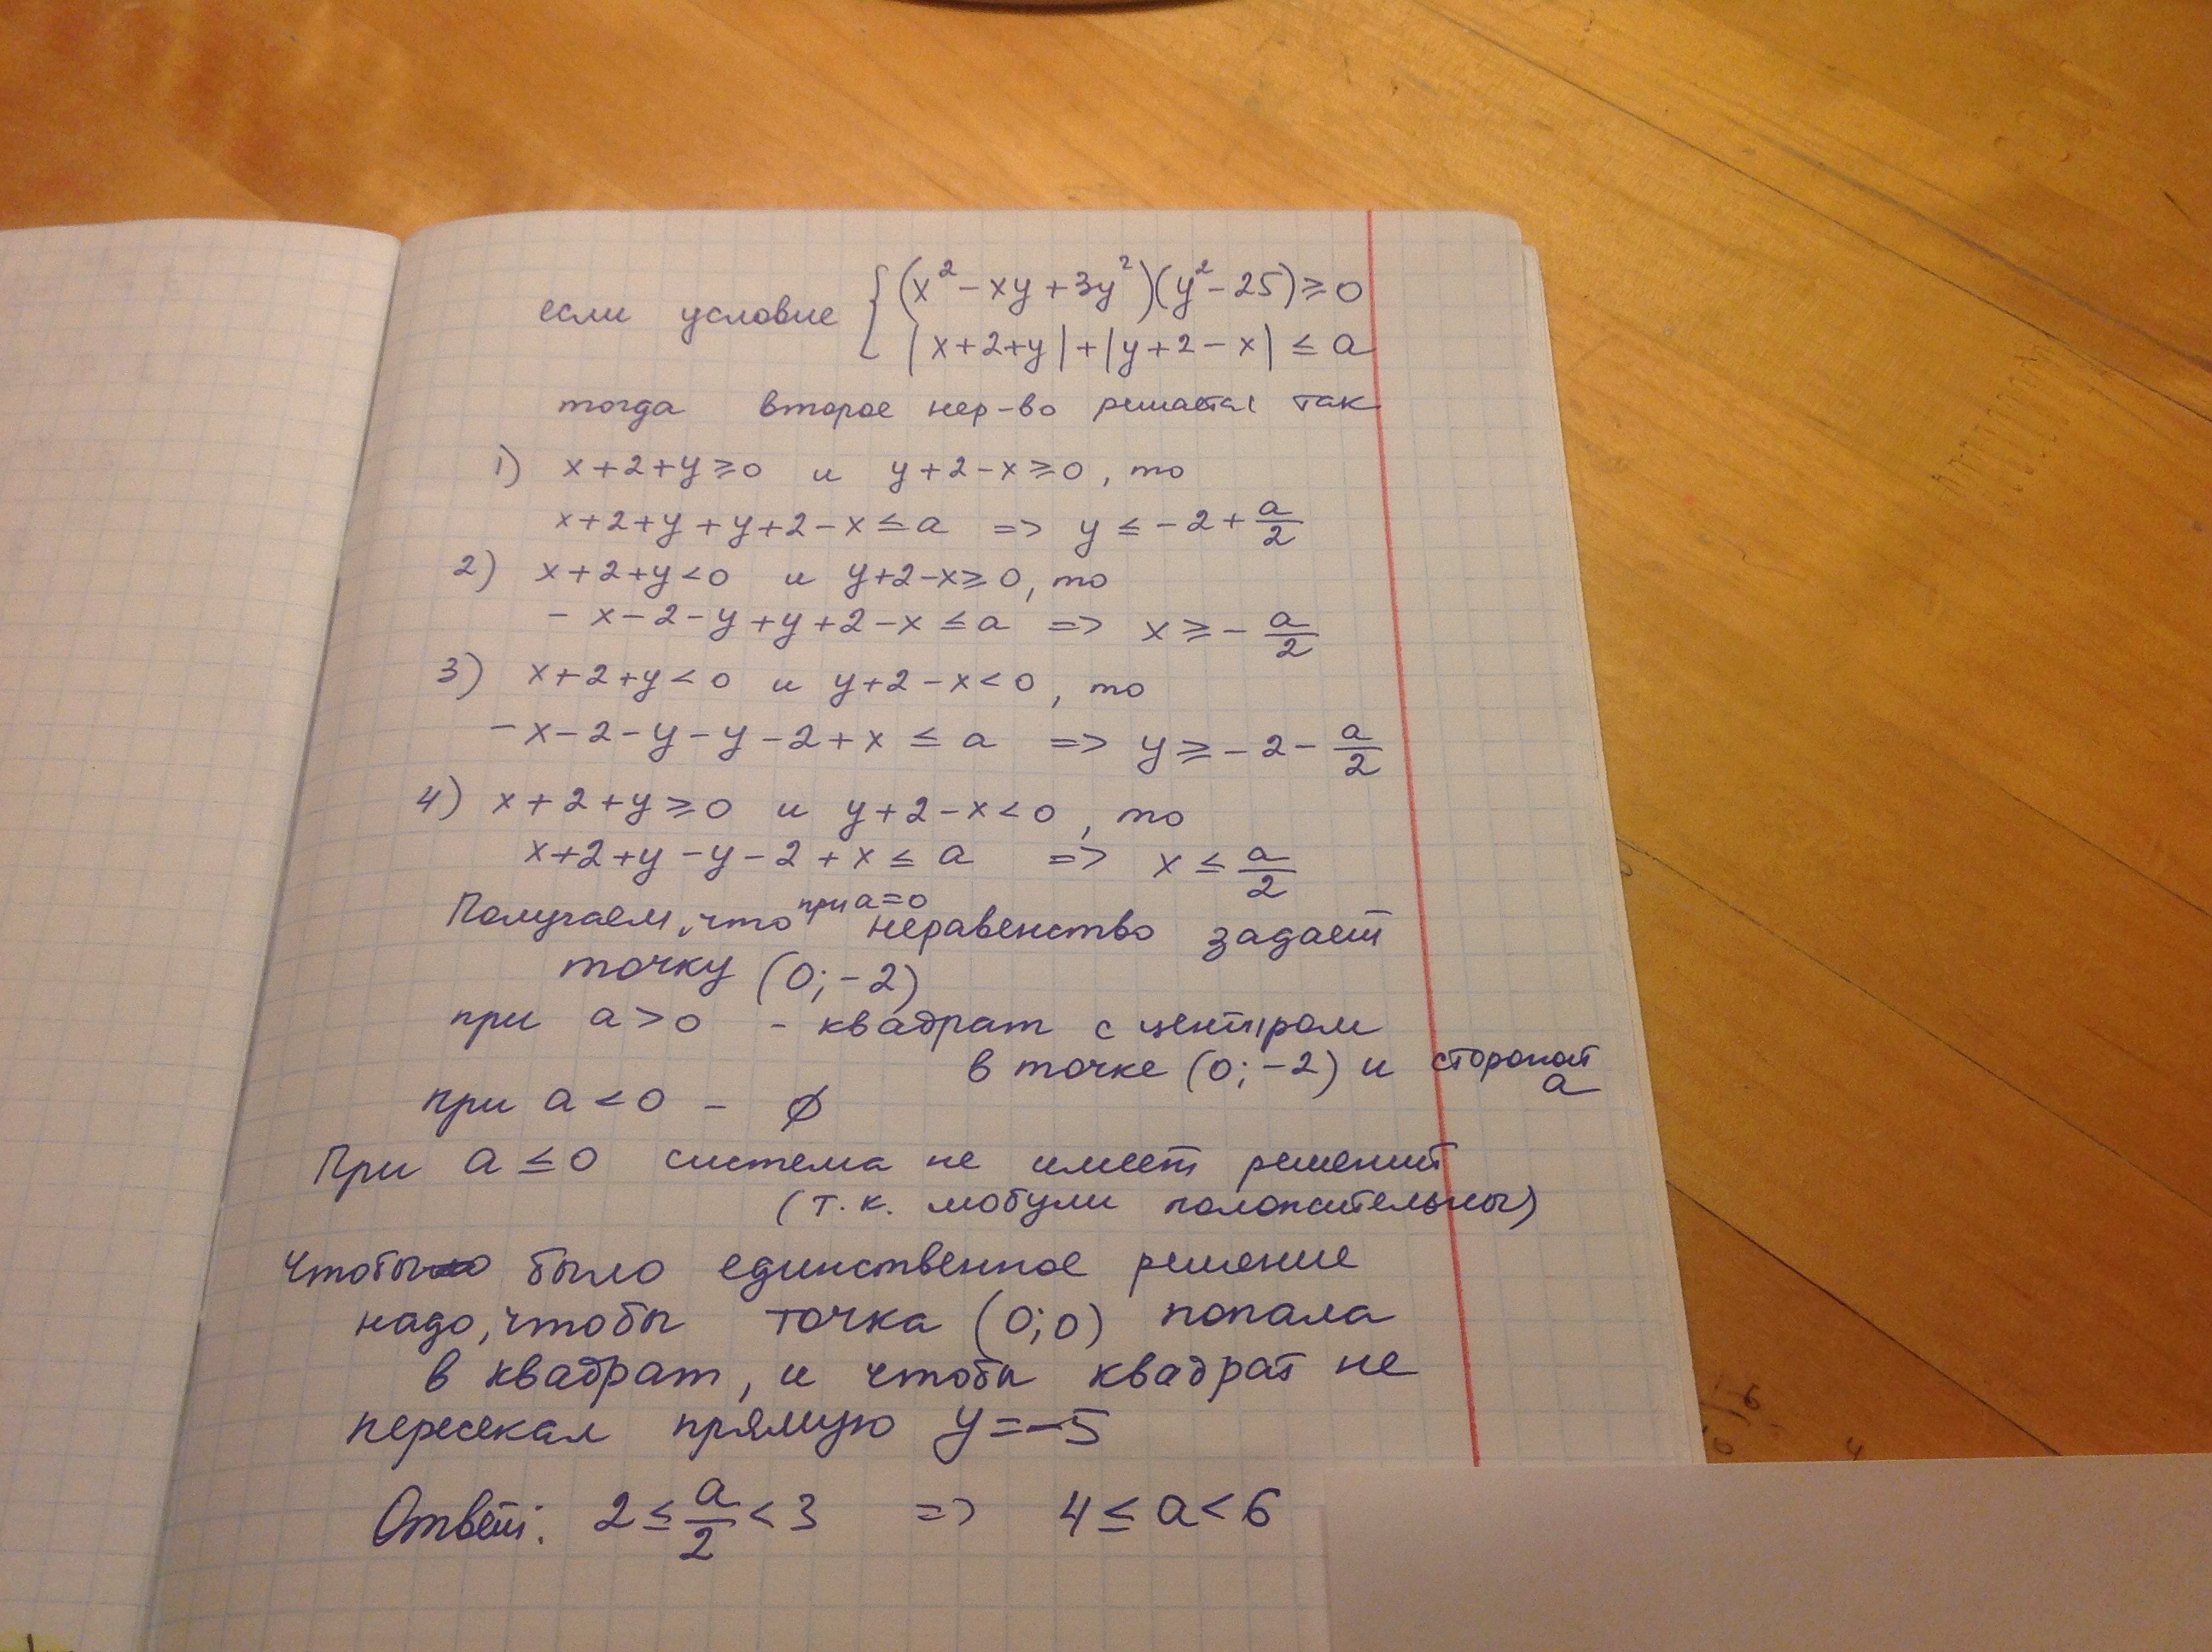 если условие { (x² - xy + 3y²)(y² - 25) ≥ 0
|x+2+y| + |y+2-x| ≤ a
тогда второе нер-во решается так
1) x+2+y ≥ 0 и y+2-x ≥ 0, то
x+2+y+y+2-x ≤ a => y ≤ -2 + a/2
2) x+2+y < 0 и y+2-x ≥ 0, то
-x-2-y+y+2-x ≤ a => x ≥ - a/2
3) x+2+y < 0 и y+2-x < 0, то
-x-2-y-y-2+x ≤ a => y ≥ -2 - a/2
4) x+2+y ≥ 0 и y+2-x < 0, то
x+2+y-y-2+x ≤ a => x ≤ a/2
Получаем, что при a=0 неравенство задает
точку (0; -2)
при a > 0 - квадрат с центром
в точке (0; -2) и стороной a
при a < 0 - ∅
При a ≤ 0 система не имеет решений
(т.к. модули положительны)
Чтобы было единственное решение
надо, чтобы точка (0;0) попала
в квадрат, и чтобы квадрат не
пересекал прямую y = -5
Ответ: 2 ≤ a/2 < 3 => 4 ≤ a < 6